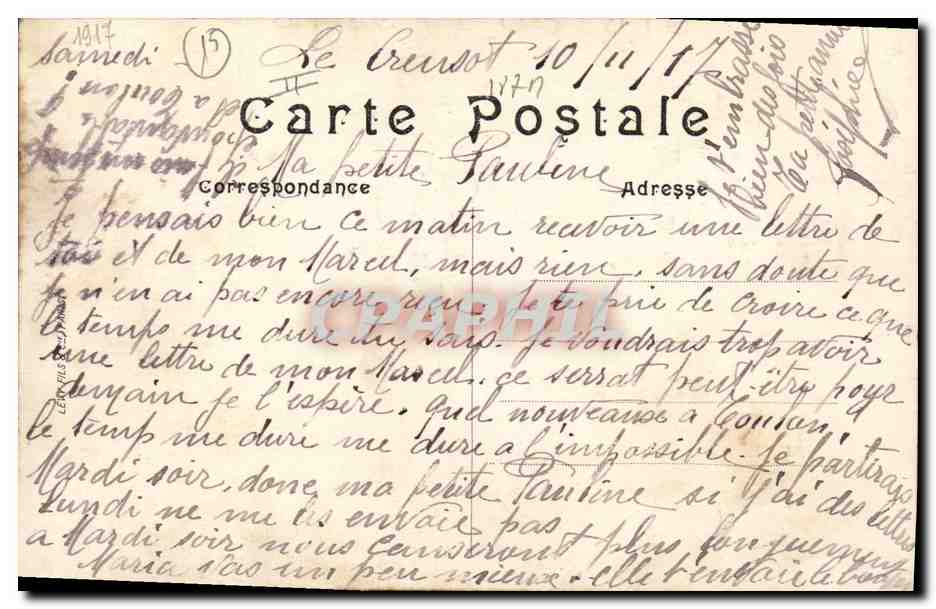 1917
Samedi
15
Le Creusot 10/11/17
II
Carte Postale
Ma petite Pauline
Correspondance
Adresse
Je pensais bien ce matin recevoir une lettre de
toi et de mon Marcel, mais rien, sans doute que
tu n'en ai pas encore rien. Je te prie de croire ce que
le temps me dure tu sais. Je voudrais trop avoir
une lettre de mon Marcel, ce serrat peut-être pour
demain je l'espère. Quel nouveause a Toulon,
le temp me dure me dure a l'impossible. Je partirais
Mardi soir, donc ma petite Pauline si j'ai des lettres
Lundi ne me les envoie pas
a Mardi soir nous causeront plus longuement
Maria vas un peu mieux. elle t'envoie le
Je t'embrasse
bien des fois
Ta petite amie
Joséphine
LEVY FILS & Cie, PARIS
CPAPHIL
a Toulon